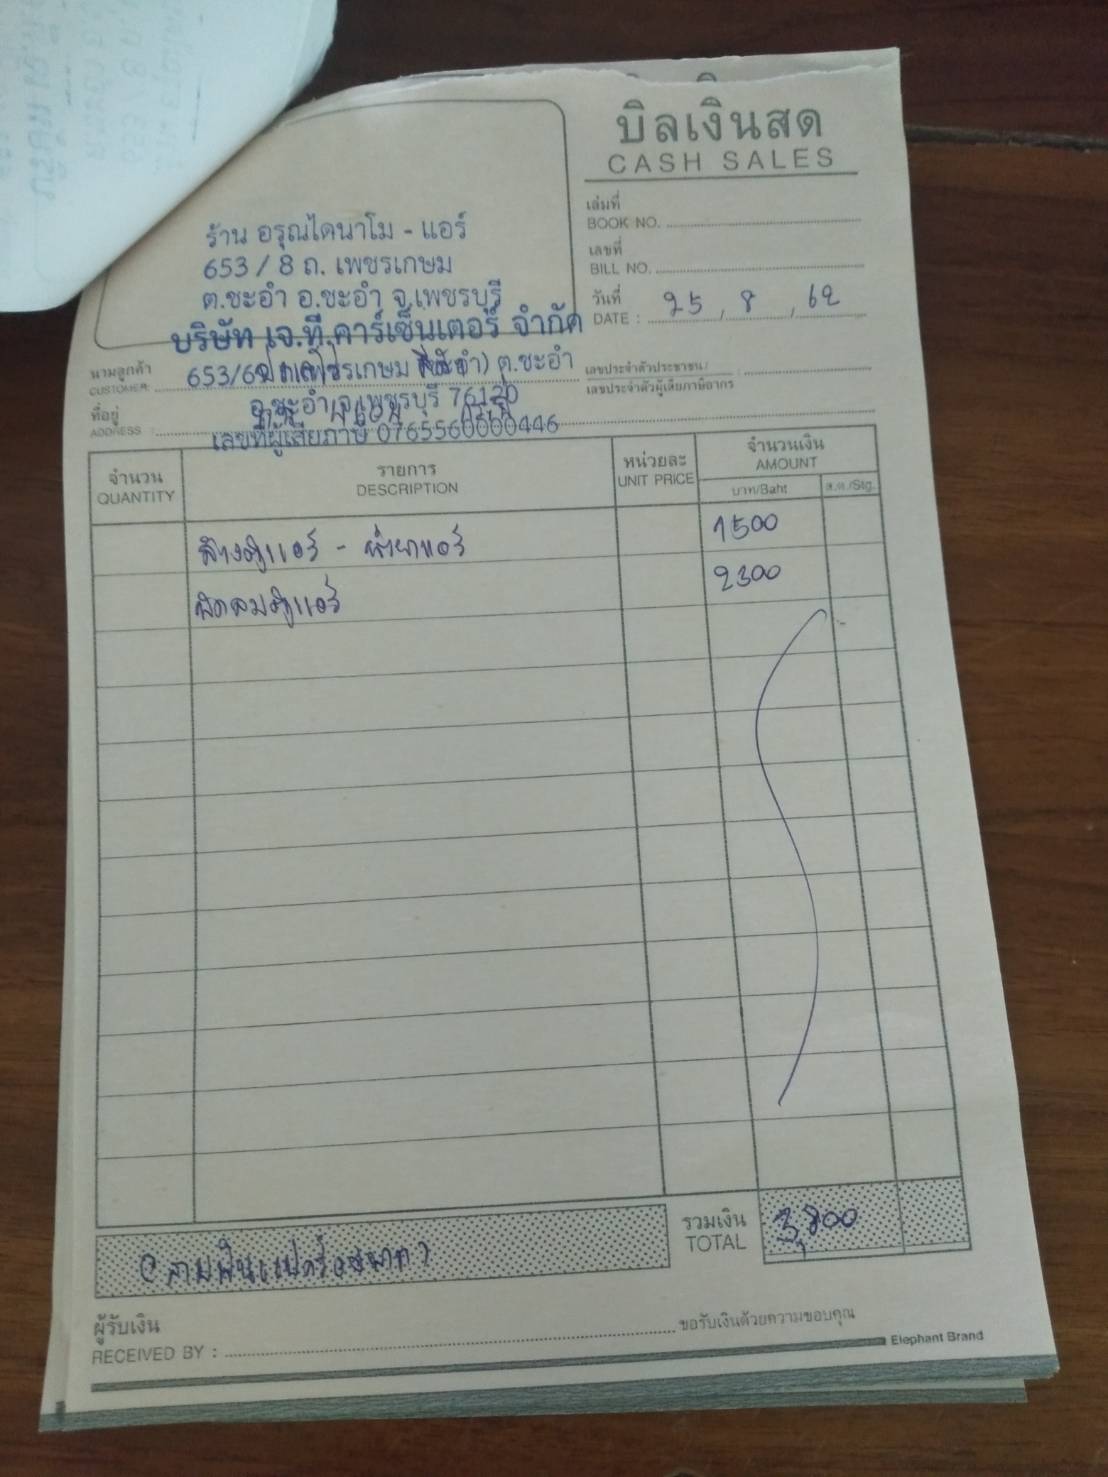 บิลเงินสด
CASH SALES
เล่มที่
BOOK NO.
เลขที่
BILL NO.
วันที่
DATE : 25 / 8 / 62
ร้าน อรุณไดนาโม - แอร์
653 / 8 ถ. เพชรเกษม
ต.ชะอำ อ.ชะอำ จ.เพชรบุรี
บริษัท เจ.ที.คาร์เซ็นเตอร์ จำกัด
นามลูกค้า
CUSTOMER:
653/6 เพชรเกษม ต.ชะอำ
เลขประจำตัวประชาชน/
เลขประจำตัวผู้เสียภาษีอากร :
ที่อยู่
ADDRESS :
อ.ชะอำ จ.เพชรบุรี 76120
เลขที่ผู้เสียภาษี 0765560000446
จำนวน
QUANTITY
รายการ
DESCRIPTION
หน่วยละ
UNIT PRICE
จำนวนเงิน
AMOUNT
บาท/Baht
ส.ต./Stg.
ล้างตู้แอร์ - น้ำยาแอร์ 1500
พัดลมตู้แอร์ 2300
รวมเงิน
TOTAL
3,800
(สามพันแปดร้อยบาท)
ผู้รับเงิน
RECEIVED BY :
ขอรับเงินด้วยความขอบคุณ
Elephant Brand